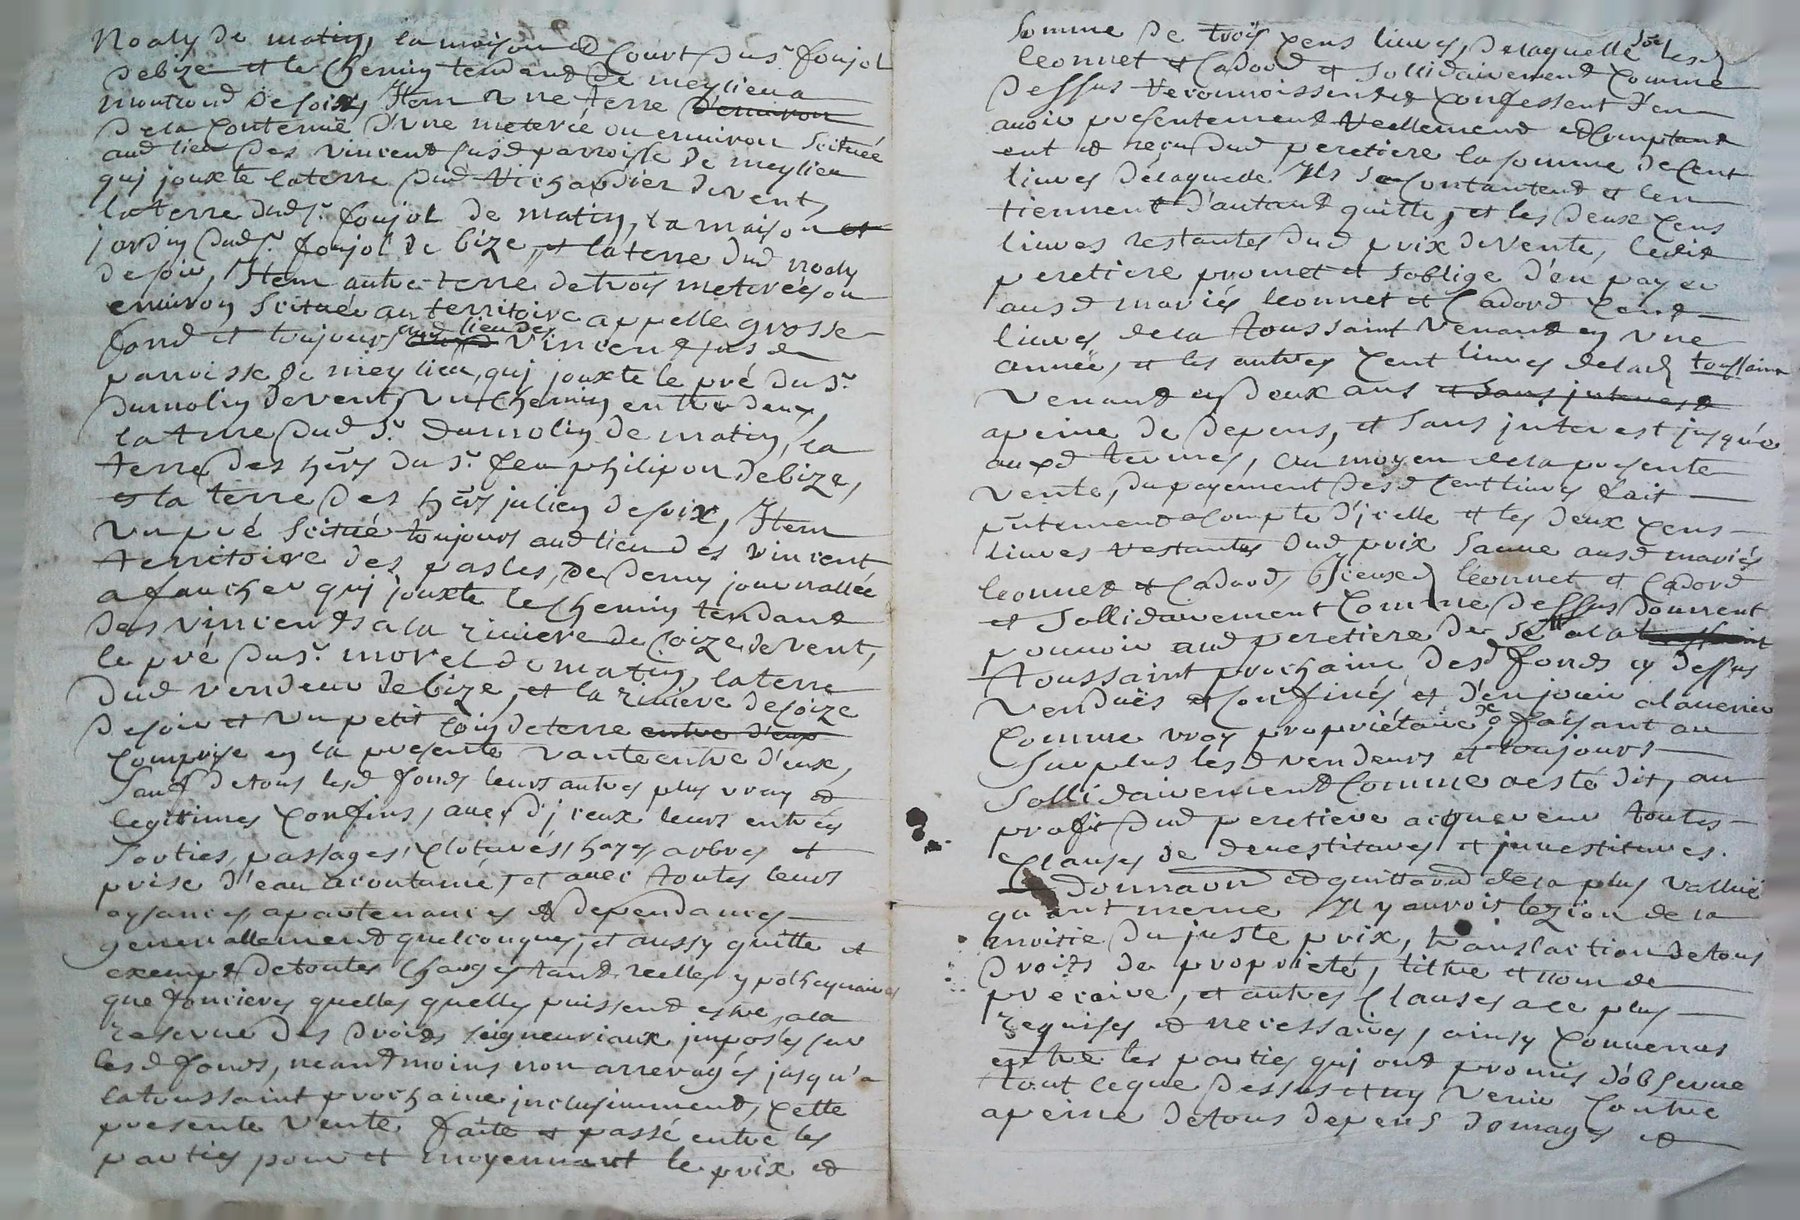 Noaly de matin, la maison & Court du sr. foujol
debize et le Chemin tendant de meylieu a
montrond de soir, Item une terre d'environ
de la Contenuë d'une meterée ou environ scituée
aud lieu des vincent susd parroisse de meylieu
quj jouxte la terre dud Richardier de vent,
la terre dud sr. foujol de matin, la maison et
jardin dud sr. foujol de bize, et la terre dud noaly
de soir, Item autre terre de trois meterées ou
environ scituée au territoire appellé grosse
fond et toujours aud lieu des vincend susd
parroisse de meylieu, quj jouxte le pré du sr.
dumolin de vent, un Chemin entre deux,
la terre dud sr. Dumolin de matin, la
terre des hērs du sr. feu philipon de bize,
et la terre des hērs julien de soir, Item
un pré scitué toujours aud lieu des vincent
territoire des pasles, de demy journallée
a faucher quj jouxte le Chemin tendant
des vincends a la riviere de Coize de vent,
le pré du sr. morel de matin, la terre
dud vendeur de bize, et la riviere de Coize
de soir et un petit coin de terre entre d'eux
comprise en la presente vante entre d'eux,
Sauf de tous lesd fonds leurs autres plus vray et
legitimes Confins, avec d'jceux leurs entrées
sorties, passages, Clotures, hayes arbres et
prise d'eau acoutumé, et avec toutes leurs
aysances, apartenances & dependances
generallement quelconques, et aussy quitte et
exempt de toutes Charges tant reelles ypothequaires
que foncieres quelles quelles puissent estre, a la
reserve des droits seigneuriaux imposés sur
lesd fonds, neantmoins non arreragés jusqu'a
la toussaint prochaine jnclusivement, Cette
presente vente faite et passé entre les
parties pour et moyennant le prix et
Somme de trois Cens livres, de laquelle soe lesd
leonnet et Cadord et sollidairement Comme
dessus reconnoissent et Confessent d'en
avoir presentement reellement et Comptant
eut et reçu dud peretiere la somme de Cent
livres de laquelle Ils se Contantent et l'en
tiennent d'autant quitte, et les deux Cens
livres restantes dud prix de vente, ledit
peretiere promet et s'oblige d'en payer
ausd mariés leonnet et Cadord Cent
livres de la toussaint venant en une
année, et les autres Cent livres de lad toussaint
venant en deux ans et sans jnterest
a peine de depens, et sans jnterest jusqu'e
auxd termes, Au moyen de la presente
vente, du payement desd Cent livres fait
pntement a Compte d'jcelle et les deux Cens
livres restantes dud prix sauve ausd mariés
leonnet et Cadord, jceuxd leonnet et Cadord
et sollidairement Comme dessus donnent
pouvoir aud peretiere de se a la
toussaint prochaine desd fonds cy dessus
venduës et Confinés et d'en jouir a l'avenir
Comme vray proprietaire faisant au
surplus lesd vendeurs et toujours
sollidairement Comme a esté dit, au
profit dud peretiere acquereur toutes
Clauses de devestitures et jnvestitures.
donnaon et quittaon de la plus valluë
qu'ant meme Il y auroit lezion de la
moitié du juste prix, translaction de tous
droits de proprieté, tittre et nom de
precaire, et autres Clauses a ce plus
requises et necessaires, ainsy Convenus
entre les parties quj ont promis d'observer
tout ce que dessus et ny venir Contre
a peine de tous depens domages et